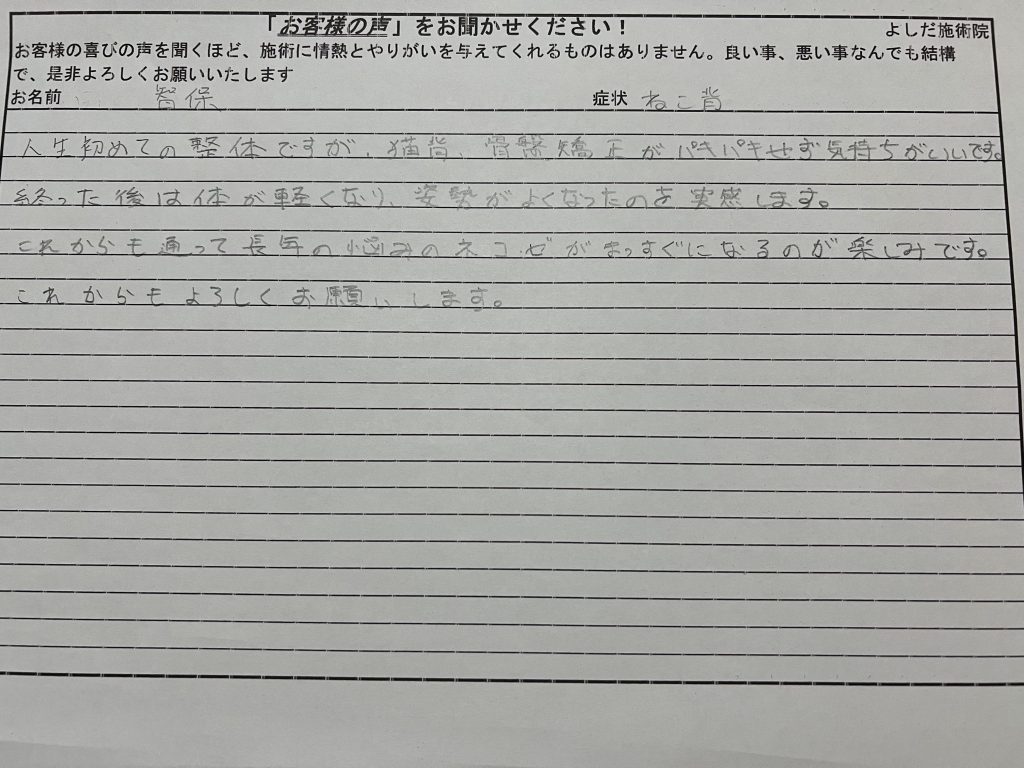 「お客様の声」をお聞かせください！
よしだ施術院
お客様の喜びの声を聞くほど、施術に情熱とやりがいを与えてくれるものはありません。良い事、悪い事なんでも結構
で、是非よろしくお願いいたします
お名前 智保 症状 ねこ背
人生初めての整体ですが、猫背、骨盤矯正がパキパキせず気持ちがいいです。
終った後は体が軽くなり、姿勢がよくなったのを実感します。
これからも通って長年の悩みのネコゼがまっすぐになるのが楽しみです。
これからもよろしくお願いします。